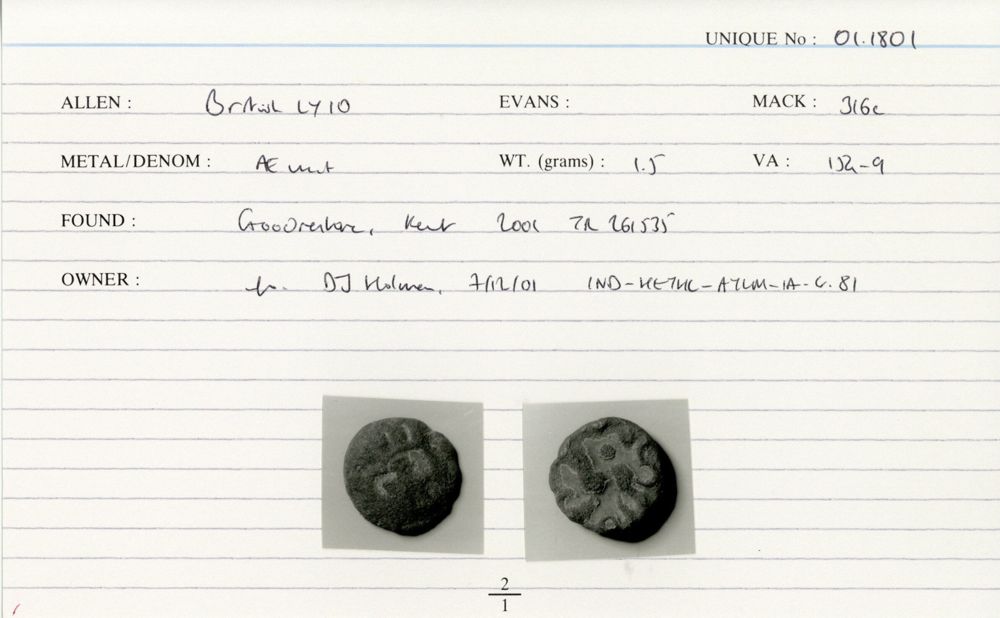 UNIQUE No : 01.1801
ALLEN : British LY10 EVANS : MACK : 316c
METAL/DENOM : AE unit WT. (grams) : 1.5 VA : 154-9
FOUND : Goodnestone, Kent 2001 TR 261535
OWNER : DJ Holman, 7/12/01
2
1